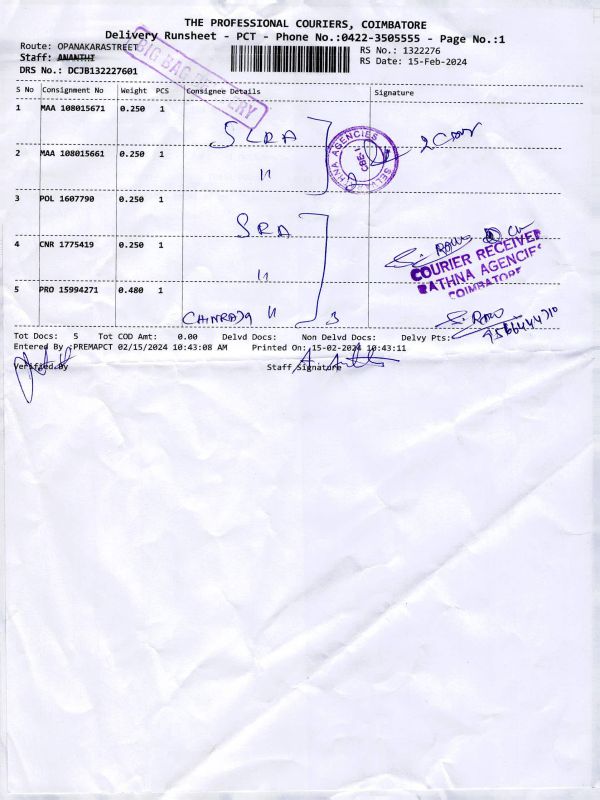 THE PROFESSIONAL COURIERS, COIMBATORE
Delivery Runsheet - PCT - Phone No.:0422-3505555 - Page No.:1
Route: OPANAKARASTREET
RS No.: 1322276
Staff: ANANTHI
RS Date: 15-Feb-2024
DRS No.: DCJB132227601
BIG BAG DELIVERY
S No Consignment No Weight PCS Consignee Details Signature
1 MAA 108015671 0.250 1
SLRA
AGENCIES
CBE-1
2 MAA 108015661 0.250 1
"
3 POL 1607790 0.250 1
SRA
4 CNR 1775419 0.250 1
"
COURIER RECEIVED
RATHNA AGENCIES
COIMBATORE
5 PRO 15994271 0.480 1
" 3
Tot Docs: 5 Tot COD Amt: 0.00 Delvd Docs: Non Delvd Docs: Delvy Pts:
Entered By :PREMAPCT 02/15/2024 10:43:08 AM Printed On: 15-02-2024 10:43:11
Verified By Staff Signature